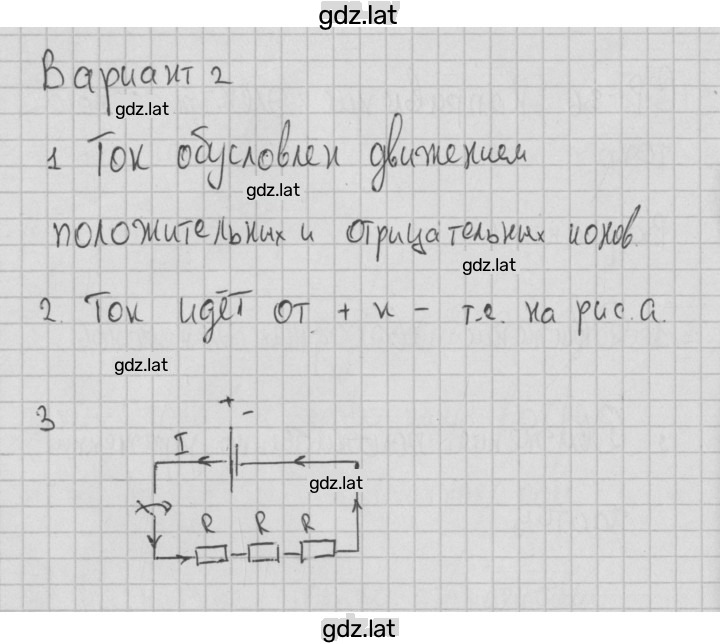 gdz.lat
Вариант 2
gdz.lat
1 Ток обусловлен движением
gdz.lat
положительных и отрицательных ионов
gdz.lat
2. Ток идёт от + к - т.е. на рис. а.
gdz.lat
3
+
-
I
gdz.lat
R R R
gdz.lat